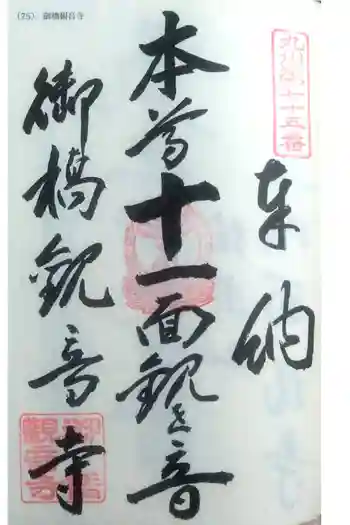 (75) 御橋観音寺
九州第七十五番
奉納
本尊十一面観世音
御橋観音寺
御橋観音寺